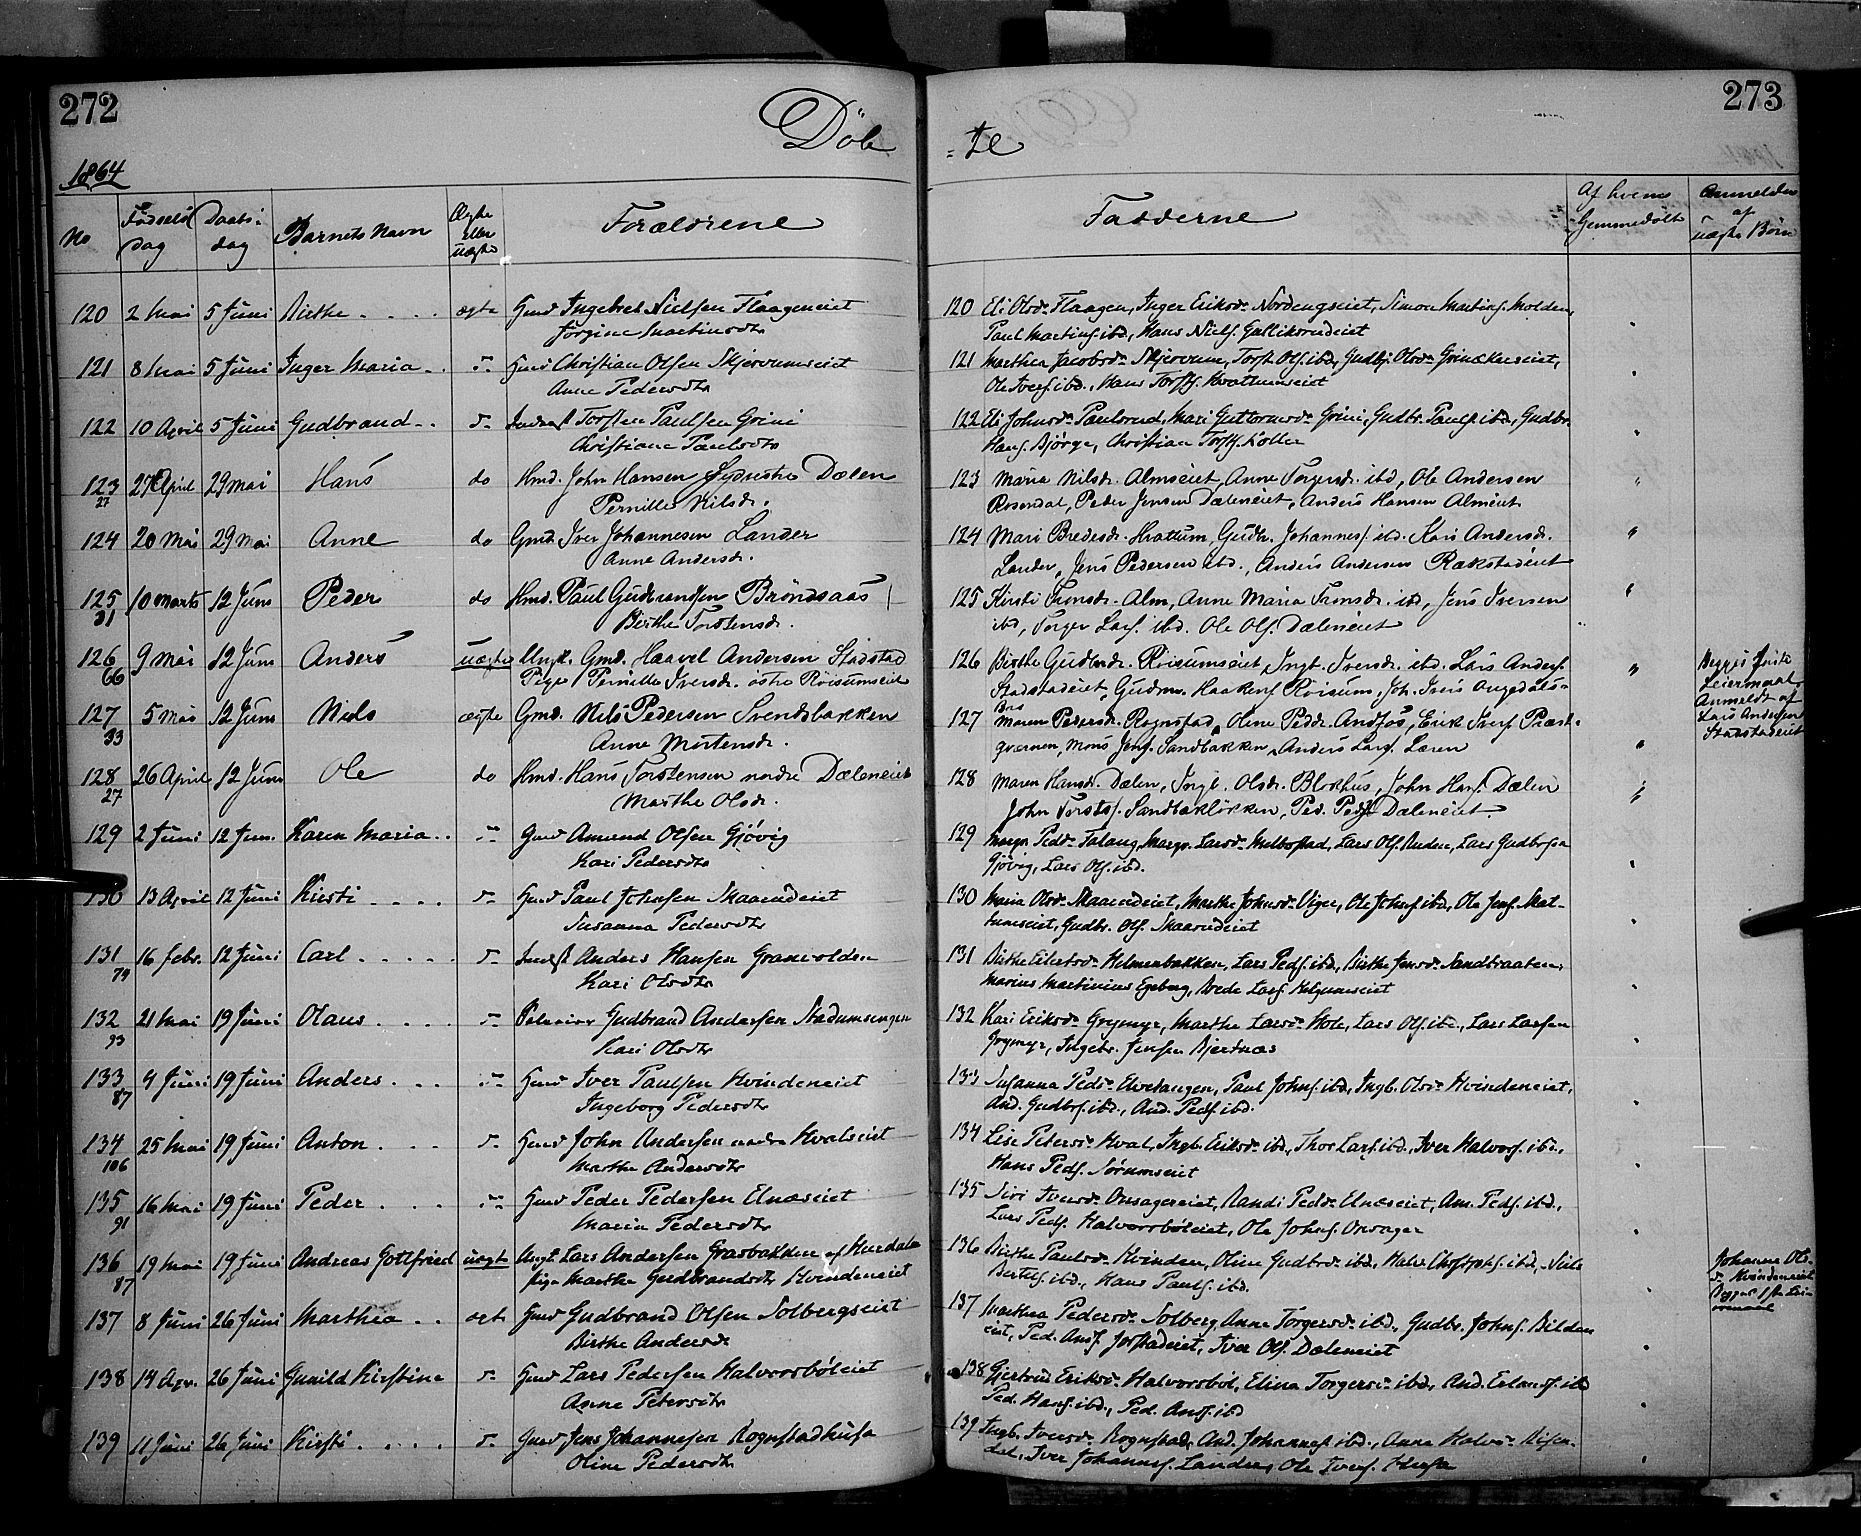 272
Döb
1864
No
Fødsels
Dag
Daabs:
dag
Barnets Navn
Ægte
eller
uægte
Forældrene
120 2 Mai 5 Juni Birthe . . . . ægte Gmd Ingebret Nielsen Flaageneiet
Jørgine Martinsdtr
121 8 Mai 5 Juni Inger Maria . . Gmd Christian Olsen Skjervumseiet
Anne Pedersdtr
122 10 April 5 Juni Gudbrand . . Inderst Torsten Paulsen Grini
Christiane Paulsdtr
123 27 April 29 Mai Hans do Hmd. John Hansen Dælen
27
Pernille Nilsdr.
124 20 Mai 29 Mai Anne do Gmd. Iver Johannesen Lander
Anne Andersdr.
125 10 Marts 12 Juni Peder do Hmd. Paul Gudbrandsen Brøndsaas
31
Berthe Torstensdr.
126 9 Mai 12 Juni Anders uægte Ungk. Gmd. Haavel Andersen Stadstad
66
Pige Pernille Iversdr. østre Röisumseiet
127 5 Mai 12 Juni Niels ægte Gmd. Nils Pedersen Svendsbakken
33
Anne Mortensdr.
128 26 April 12 Juni Ole do Hmd. Hans Torstensen nordre Dæleneiet
27
Marthe Olsdr.
129 2 Juni 12 Jun. Karen Maria . . Gmd Amund Olsen Gjövig
Kari Pedersdtr
130 13 April 12 Juni Kirsti . . . . Gmd Paul Johnsen Skaarudeiet
Susanna Pedersdtr
131 16 febr. 12 Juni Carl . . . . . Inderst Anders Hansen Granevolden
79
Kari Olsdtr
132 21 Mai 19 Juni Olaus . . . . Gudbrand Andersen
93
Kari Olsdtr
133 4 Juni 19 Juni Anders . . . Gmd Iver Paulsen Hvindeneiet
87
Ingeborg Pedersdtr
134 25 Mai 19 Juni Anton . . . Gmd John Andersen nedre Hvalseiet
106
Marthe Andersdtr
135 16 Mai 19 Juni Peder . . . Gmd Peder Pedersen Elnæseiet
91
Maria Pedersdtr
136 19 Mai 19 Juni Andreas Gottfried uægte Ungk. Lars Andersen Grasbakken af Hurdalen
87
Pige Marthe Gudbrandsdtr Hvindeneiet
137 8 Juni 26 Juni Marthea . . ægte Gmd Gudbrand Olsen Solbergseiet
Birthe Andersdr
138 14 Apr. 26 Juni Gunild Kirstine Gmd Lars Pedersen Halvorsböleiet
Anne Petersdtr
139 11 Juni 26 Juni Kirsti . . . . Gmd Jens Johannesen Rognstadhusa
Oline Pedersdtr
273
=te
Fadderne
Af hvem
Hjemmedöbt
Anmeldere
af
uægte Börn
120 Eli Olsdr Flaagen, Inger Eriksdr Nordengseiet, Simon Martins. Molden,
Paul Martins. ibd, Hans Niels. Galliksrudeiet
121 Marthea Jacobsdr Skjervum, Torst. Ols. ibd, Gudbj. Olsdr Grinakereiet,
Ole Ivers. ibd., Hans Torsts. Hvattumseiet
122 Eli Johnsdr Paulsrud, Mari Guttormsdr Grini, Gudbr. Pauls. ibd, Gudbr.
Hans. Bjørge, Christian Torsts. Koller
123 Maria Nilsdr. Almseiet, Anne Torgersdr. ibd, Ole Andersen
Rosendal, Peder Jensen Dæleneiet, Anders Hansen Almeiet
124 Mari Bredesdr. Hvattum, Gudbr. Johannes. ibd. Kari Andersdr.
Lander, Jens Pedersen ibd., Anders Andersen Rækstadeiet
125 Kirsti Fransdr. Alm, Anne Maria Fransdr. ibd, Jens Iversen
ibd, Torger Lars. ibd. Ole Ols. Dæleneiet
126 Birthe Gudbrdr. Röisumseiet, Ingb. Iversdr. ibd. Lars Anders.
Stadstadeiet, Gudm. Haakens. Röisum, Joh. Ivers Angedals-
Bro
127 Maren Pedersdr. Rognstad, Oline Peddr. Andfos, Erik Ivers. Præst-
qværnen, Mons Jens. Sandbakken, Anders Lars. Læren
128 Maren Hansdr. Dælen, Ingb. Olsdr. Blokhus, John Hans. Dælen
John Torsts. Sandbakløkken, Ped. Peds. Dæleneiet.
129 Margr. Pedsdr Falang, Margr. Larsdr Melbostad, Lars Ols. Anden, Lars Gudbrsen
Gjövig, Lars Ols. ibd.
130 Maria Olsdr Skaarudeiet, Marthe Johnsdr Vigen, Ole Johns. ibd, Ole Jens.
Gudbr. Ols. Skaarudeiet
131 Birthe Eilertsdr Helmenbakken, Lars Peds. ibd, Birthe Jensdr Sandbraaten,
Marius Martinius Egeberg, Brede Lars. Helgumseiet
132 Kari Eriksdr Grymyr, Marthe Larsdr Hole, Lars Ols. ibd., Lars Larsen
Grymyr, Ingebr. Jensen Bjertnæs
133 Susanna Pedsdr Elvetangen, Paul Johns. ibd, Ingb. Olsdr Hvindeneiet,
And. Gudbrs. ibd., And. Peds. ibd.
134 Lise Petersdr Hval, Ingb. Eriksdr ibd., Thor Lars. ibd., Iver Halvors. ibd.,
Hans Peds. Sörumseiet
135 Siri Iversdr Onsagereiet, Randi Pedsdr Elnæseiet, Am. Peds. ibd.,
Lars Peds. Halvorsböleiet, Ole Johns. Onsager
136 Birthe Paulsdr Hvinden, Oline Gudbrdr ibd., Halvor ibd.,
Bertels. ibd., Hans Pauls. ibd.
137 Marthea Pedersdr Solberg, Anne Torgersdr ibd., Gudbr. Johns. Bilden
eiet, Ped. Ands. Jorstadeiet, Iver Ols. Dæleneiet
138 Gjertrud Eriksdr Halvorsböl, Elina Torgersdr ibd, And. Erlands. ibd
Ped. Hans. ibd., Ped. Ands. ibd
139 Ingb. Iversdr Rognstad, And. Johannes. ibd., Anna Halvdr
Iver Johanness. Lander, Ole Ivers. Husa
Begges første
Leiermaal,
Anmeldt af
Lars Andersen
Stadstadeiet
Johanne Ols-
dr Hvindeneiet
Begges 1ste Lei-
ermaal